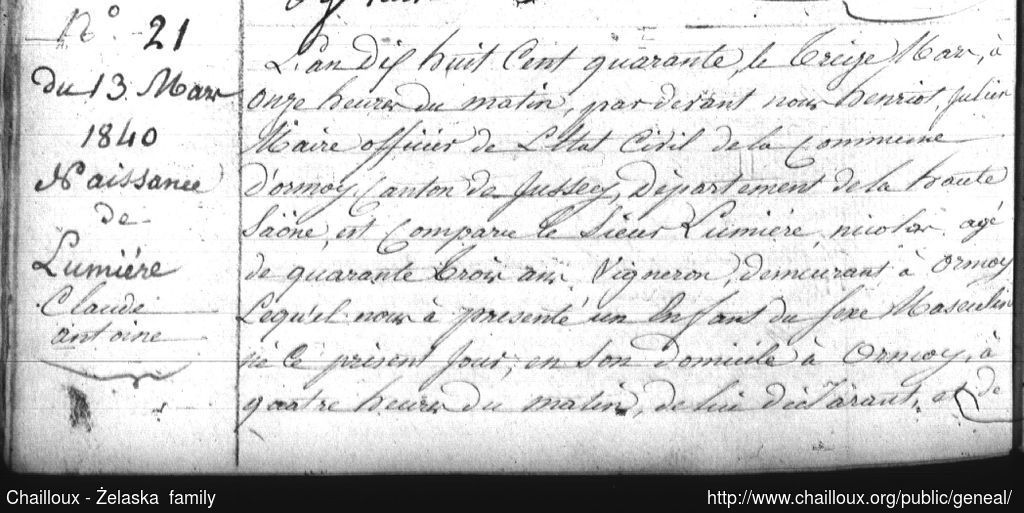 N.° 21
du 13 Mars
1840
Naissance
de
Lumiére
Claude
antoine
L'an dix huit Cent quarante, le treize Mars, à
onze heures du matin, par devant nous henriot, Julien
Maire officier de L'Etat Civil de la Commune
d'ormoy, Canton de Jussey, Département de la haute
Saône, est Comparu le Sieur Lumiére, nicolas, agé
de quarante trois ans, Vigneron, demeurant à Ormoy
Lequel nous à présenté un Enfant du Sexe Masculin
né Ce présent Jour, en Son domicile à Ormoy, à
quatre heures du matin, de lui déclarant, et de
Chailloux - Żelaska family
http://www.chailloux.org/public/geneal/